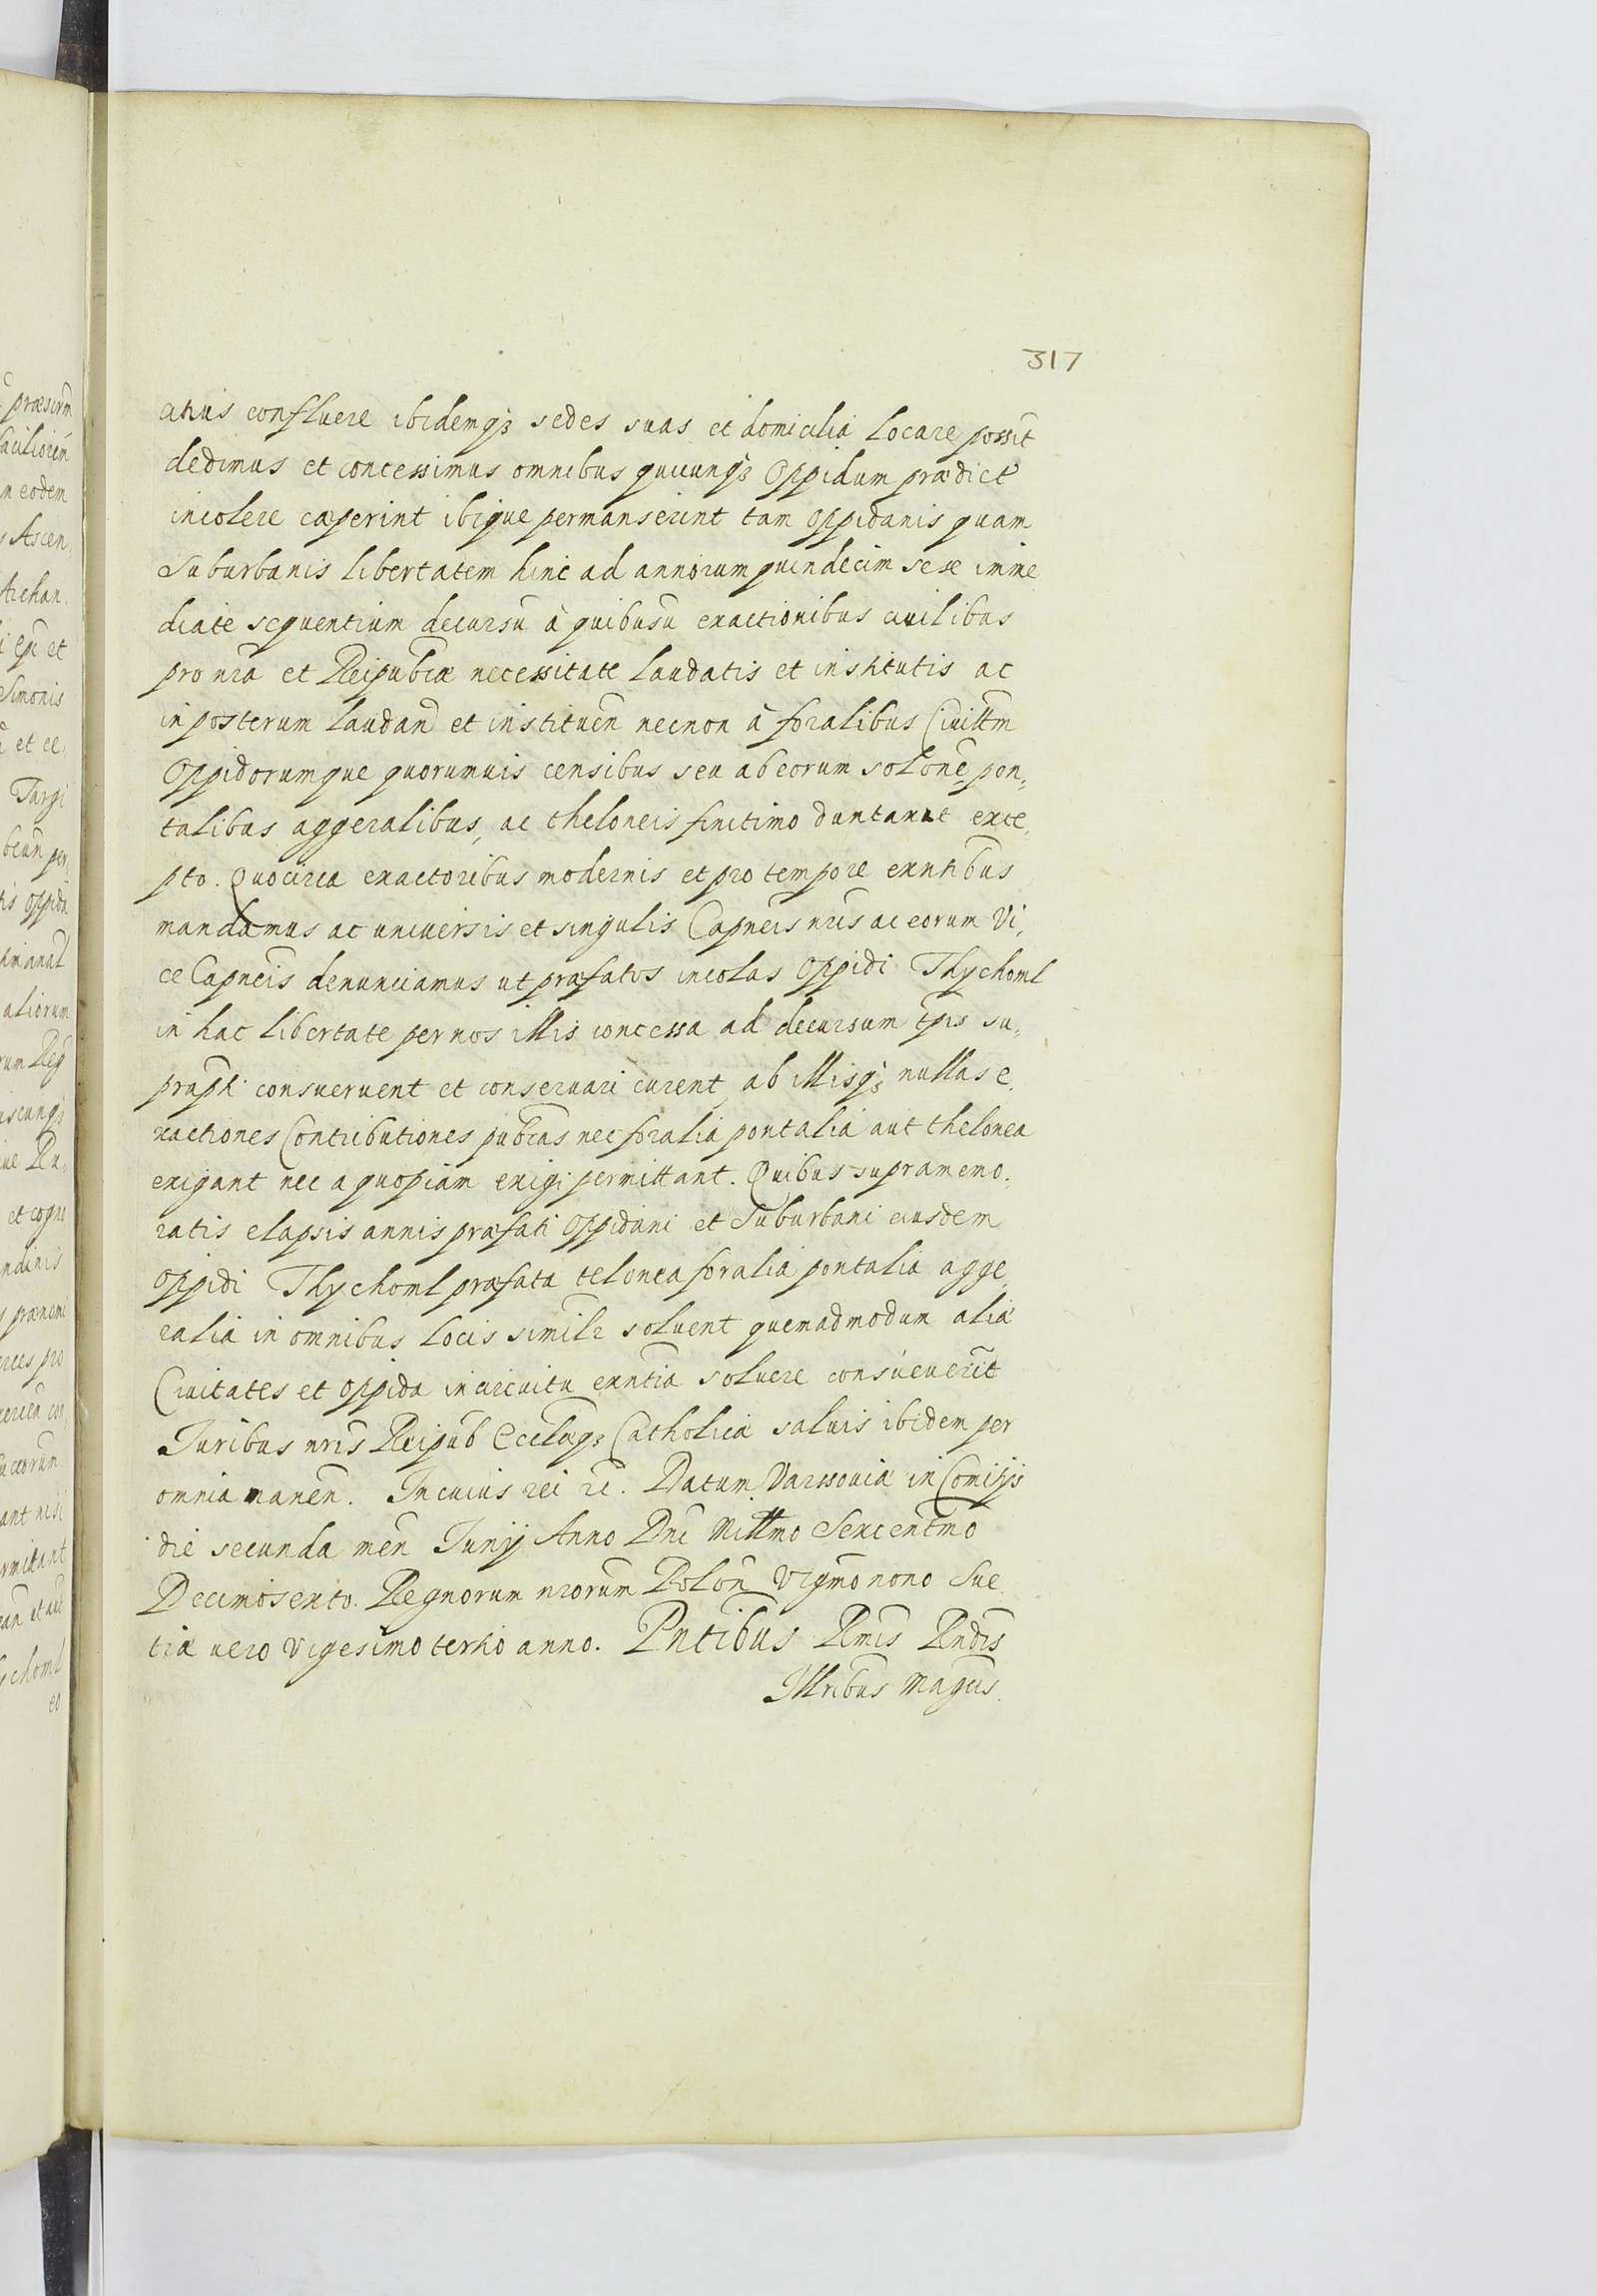 317
atius confluere ibidemq3 sedes suas et domicilia locare possit
dedimus et concessimus omnibus quicunq3 Oppidum prædict
incolere cæperint ibique permanserint tam oppidanis quam
Suburbanis libertatem hinc ad annorum quindecim sese imme
diate sequentium decursū à quibusū exactionibus ciuilibus
pro nrā et Reipubcæ necessitate laudatis et institutis ac
in posterum laudan̄d et instituen̄ necnon à foralibus Ciuittm̄
Oppidorumque quorumuis censibus seu ab eorum solōne, pon,
talibus aggeralibus, ac theloneis finitimo duntaxat exce,
pto. Quocirca exactoribus modernis et pro tempore exntibus
mandamus ac uniuersis et singulis Capneis nrīs ac eorum Vi,
ce Capneis denunciamus ut præfatos incolas Oppidi Thychoml
in hac libertate per nos illis concessa ad decursum tp̄is su,
prapti consueruent et conseruari curent, ab illisq3 nullas e,
xactiones Contributiones pubcas nec foralia pontalia aut thelonea
exigant nec a quopiam exigi permittant. Quibus supramemo,
ratis elapsis annis præfati Oppidani et Suburbani eiusdem
oppidi Thychoml præfata telonea foralia pontalia agge,
ralia in omnibus locis similr soluent quemadmodum alia
Ciuitates et oppida in circuitu exntia soluere consueuerīt
Juribus nrīs Reipub Eccliæq3 Catholicæ saluis ibidem per
omnia manen̄. In cuius rei rē. Datum Varssouiæ in Comitijs
die secunda men̄ Junij Anno Dnī Millmo Sexcentmo
Decimosexto. Regnorum nrorum Polon̄ Vigmo nono Sue
tiæ uero Vigesimo tertio anno. Pntibus Rmīs Rndīs
Illribus Magcis.